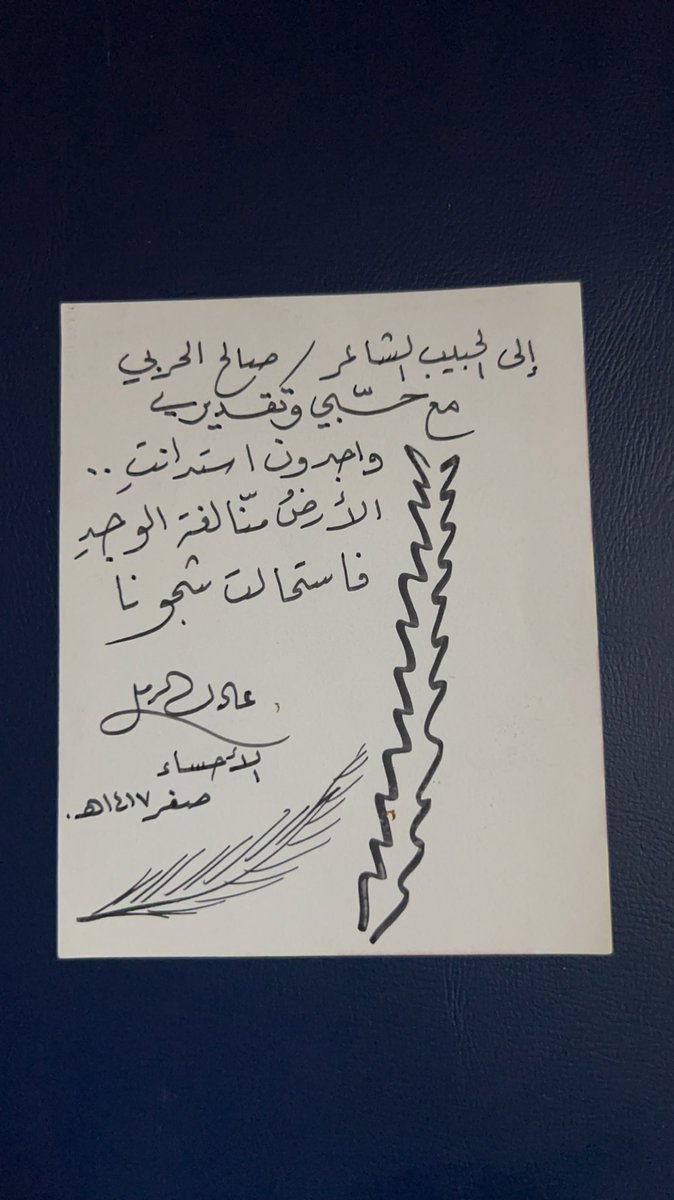 إلى الحبيب الشاعر / صالح الحربي
مع حبّي وتقديري
واجدون استدانتِ ..
الأرضُ منّا لغة الوجدِ
فاستحالت شجونا
الأحساء
صفر ١٤١٧هـ.